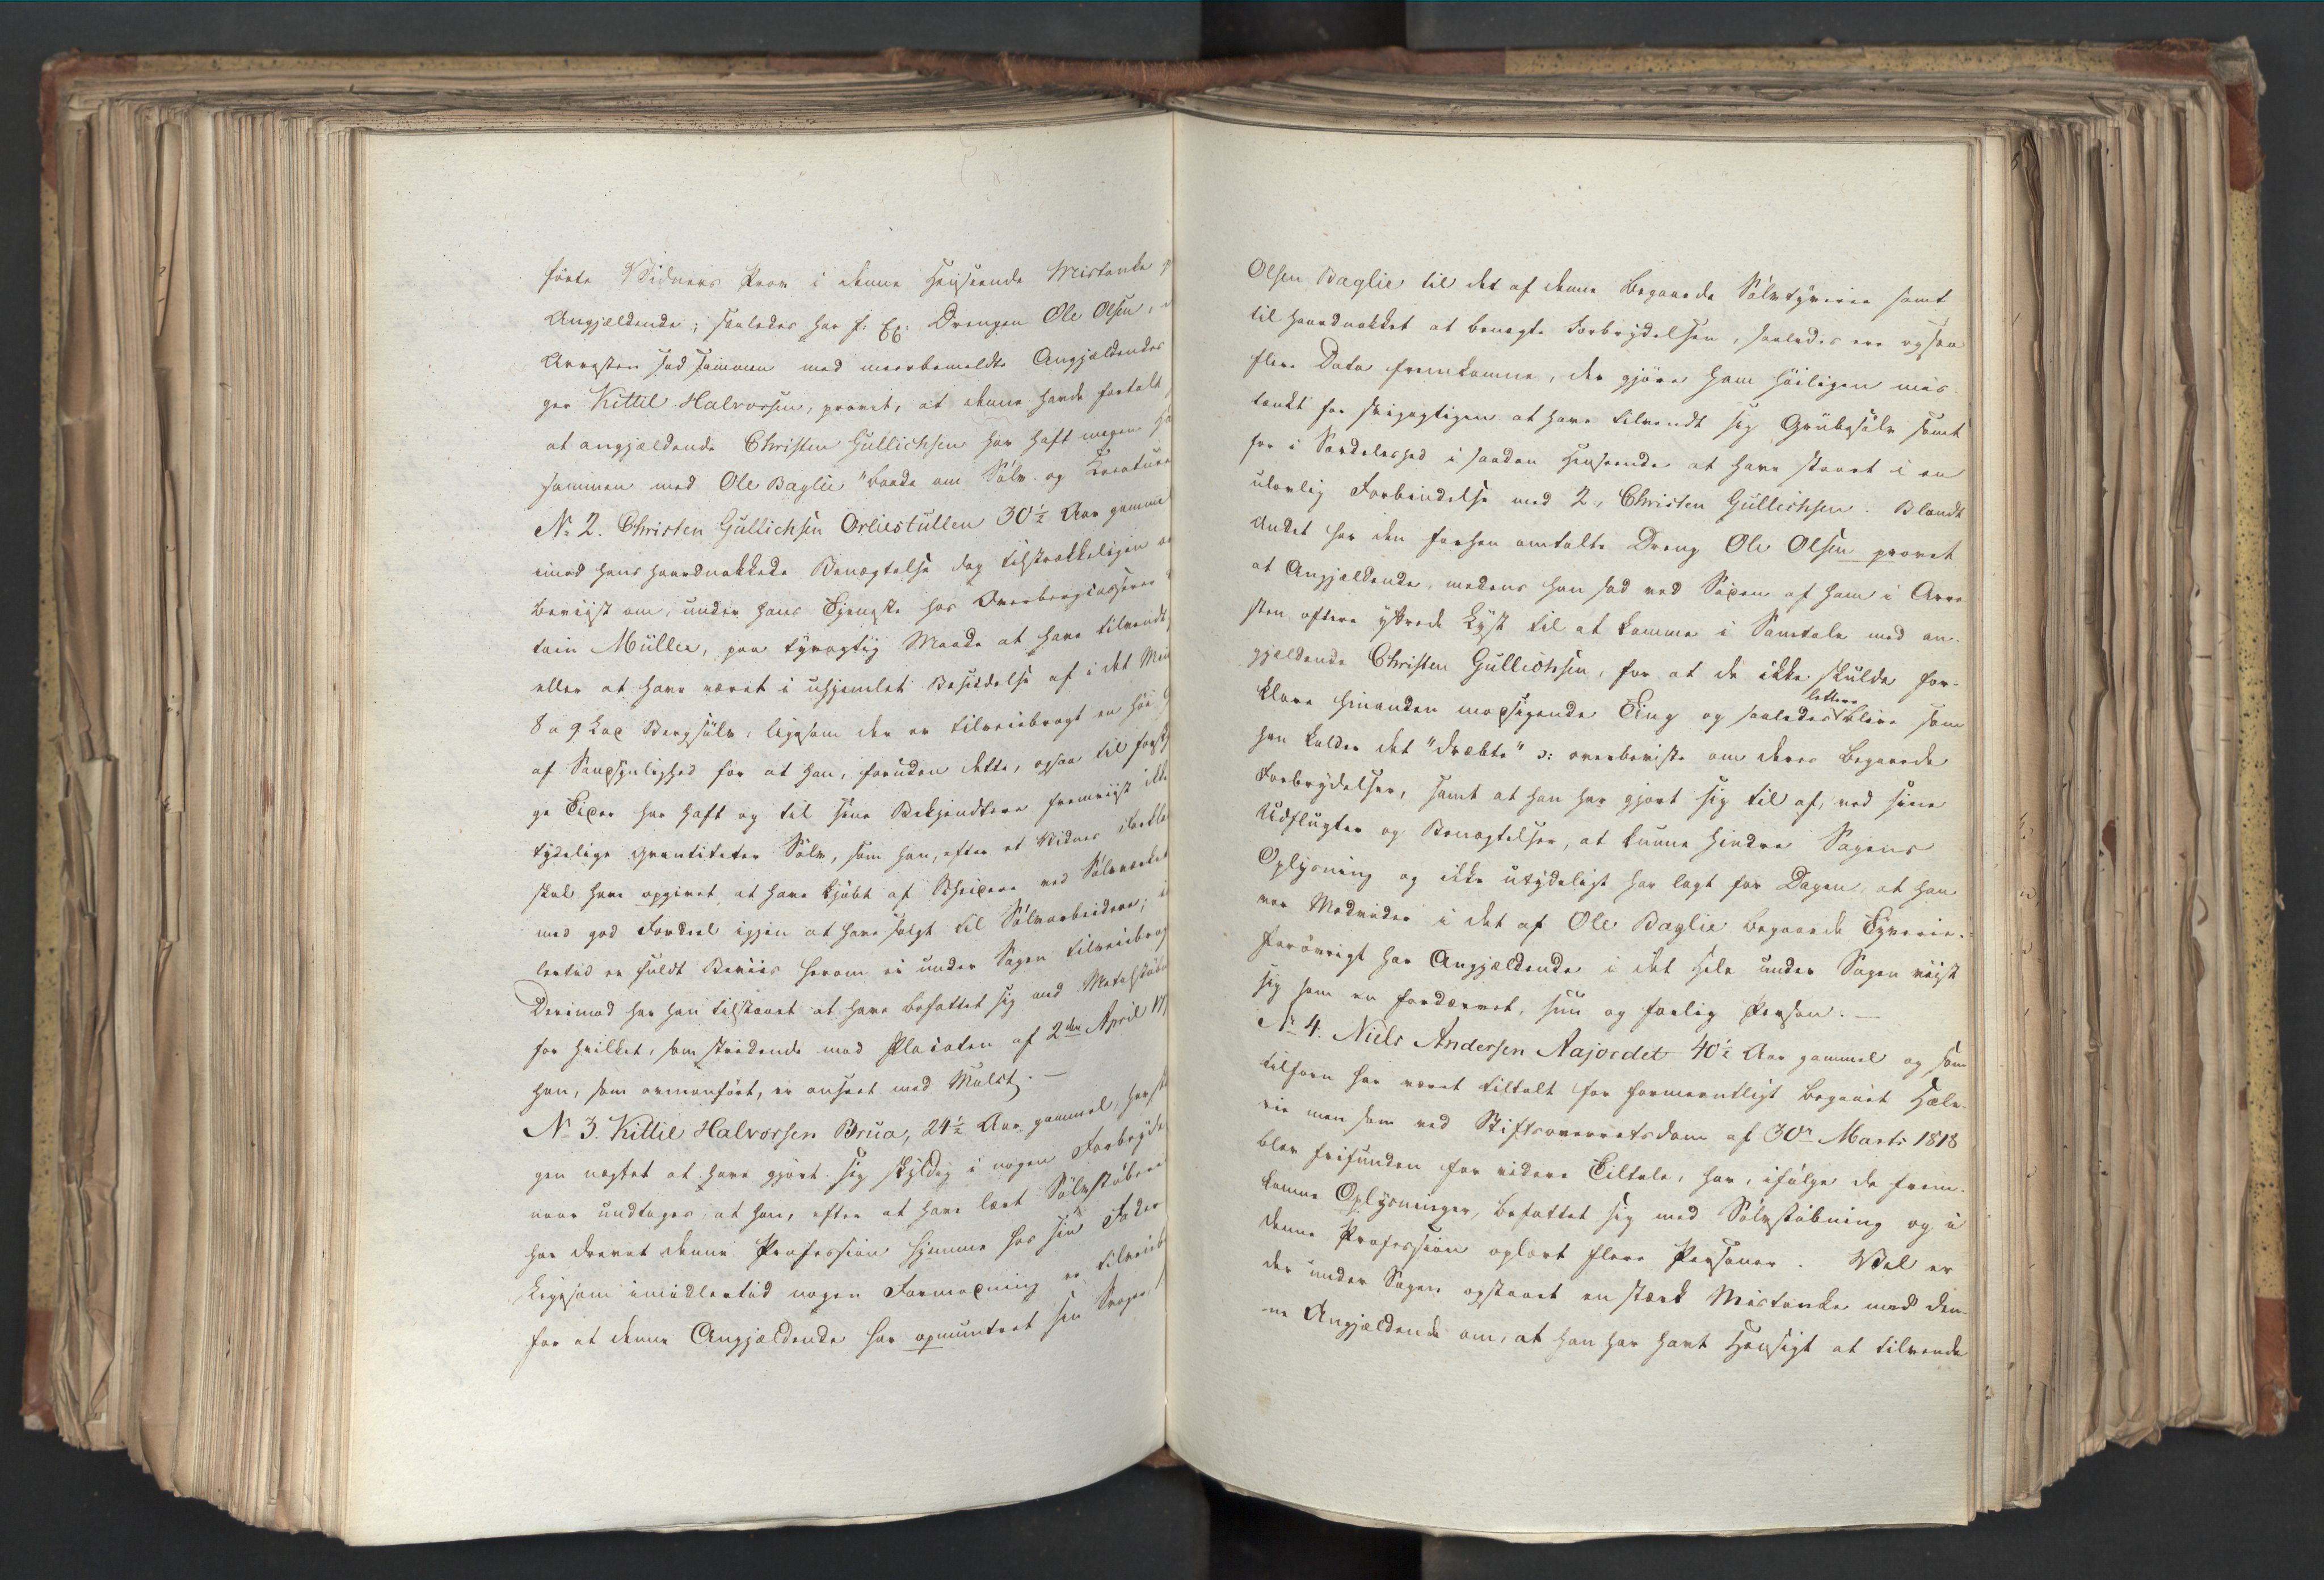 førte Vidners Prov i denne Henseende Mistanke
Angjældende; saaledes har f: Ex: Drengen Ole Olsen,
Arresten sad sammen med meerbemeldte Angjældendes
ger Kittil Halvorsen, provet, at denne havde fortalt
at angjældende Christen Gullichsen har haft megen
sammen med Ole Baglie "baade om Sølv og Kreature
No 2. Christen Gullichsen Orliestullen 30½ Aar gamme
imod hans haardnakkede Benægtelse dog tilstrækkeligen
beviist om, under hans Tjeneste hos Overbergcasserer
tain Müller, paa tyvagtig Maade at have tilvendt
eller at have været i uhjemlet Besiddelse af i det Min
8 a 9 Lod Bergsølv, ligesom der er tilveiebragt en høi
af Sandsynlighed for at han, foruden dette, ogsaa til forskj
ge Tider har haft og til sine Bekjendtere fremviist ikke
tydelige Qvantiteter Sølv, som han, efter et Vidnes
skal have opgivet, at have kjøbt af Skeidere ved Sølvværket
med god Fordeel igjen at have solgt til Sølvarbeidere;
lertid er fuldt Beviis herom ei under Sagen tilveiebrag
Derimod har han tilstaaet at have befattet sig med Metalstøbn
for hvilket, som stridende mod Placaten af 2den April
han, som ovenanført, er anseet med Mulct. —
No 3. Kittil Halvorsen Brua, 24½ Aar gammel, har
gen nægtet at have gjort sig skyldig i nogen Forbryde
naar undtages, at han, efter at have lært Sølvstøberi
har drevet denne Profession hjemme hos sin Fader
Ligesom imidlertid nogen Formodning er tilveieb
for at denne Angjældende har opmuntret sin Svoger
Olsen Baglie til det af denne begaaede Sølvtyverie samt
til haardnakket at benægte Forbrydelsen, saaledes ere ogsaa
flere Data fremkomne, der gjøre ham høiligen mis-
tænkt for svigagtigen at have tilvendt sig Grubesølv samt
for i Særdeleshed i saadan Henseende at have staaet i en
ulovlig Forbindelse med 2., Christen Gullichsen. Blandt
Andet har den forhen omtalte Dreng Ole Olsen provet
at Angjældende, medens han sad ved Siden af ham i Arre
sten oftere yttrede Lyst til at komme i Samtale med an-
gjældende Christen Gullichsen, for at de ikke skulde for-
klare hinanden modsigende Ting og saaledes lettere blive som
han kalder det "dræbte" ɔ: overbeviste om deres begaaede
Forbrydelser, samt at han har gjort sig til af, ved sine
Udflugter og Benægtelser, at kunne hindre Sagens
Oplysning og ikke utydeligt har lagt for Dagen, at han
var Medvider i det af Ole Baglie begaaede Tyverie.
Forøvrigt har Angjældende i det Hele under Sagen viist
sig som en fordærvet, snu og farlig Person. —
No 4. Niels Andersen Aajordet 40½ Aar gammel og som
tilforn har været tiltalt for formeentligt begaaet Hæle-
rie men som ved Stiftsoverretsdom af 30te Marts 1818
blev frifunden for videre Tiltale, har, ifølge de frem-
komne Oplysninger, befattet sig med Sølvstøbning og i
denne Profession oplært flere Personer. Vel er
der under Sagen opstaaet en stærk Mistanke mod den-
ne Angjældende om, at han har havt Hensigt at tilvende